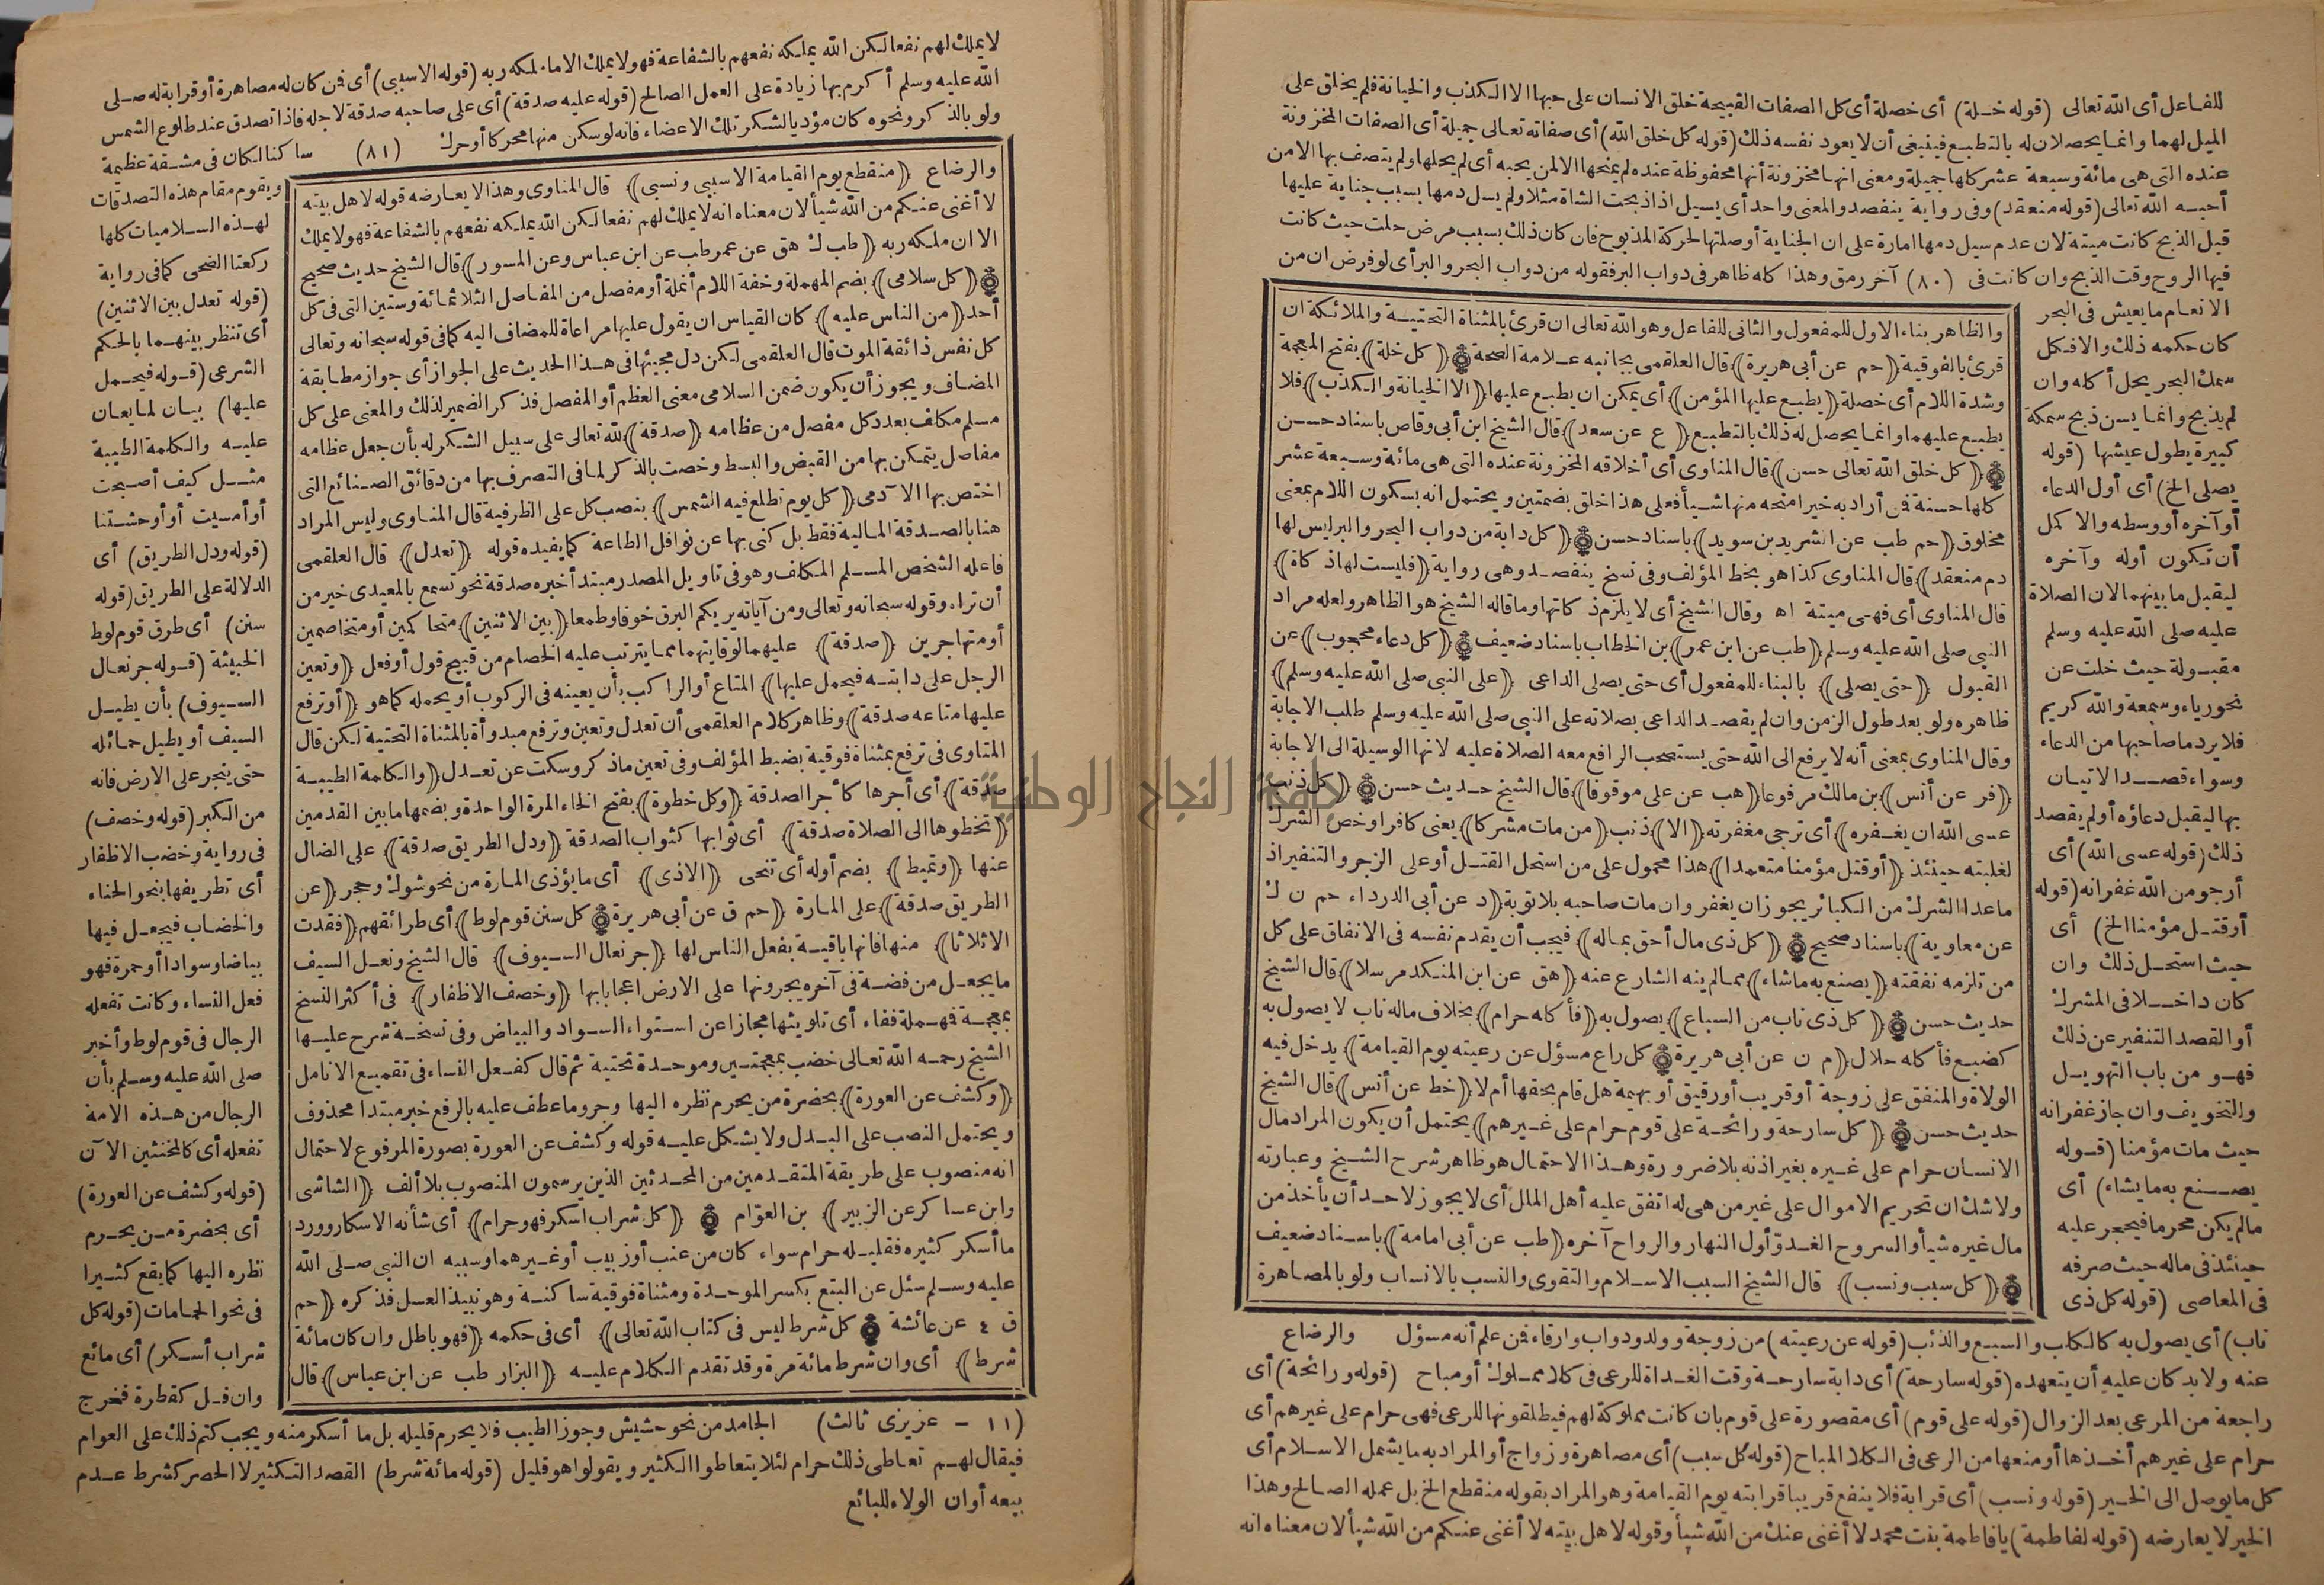 للفاعل أى الله تعالى (قوله خلة) أى خصلة أى كل الصفات القبيحة خلق الانسان على حبها الا الكذب والخيانة فلم يخلق على
الميل لهما وانما يحصلان له بالتطبع فينبغى أن لا يعود نفسه ذلك (قوله كل خلق الله) أى صفاته تعالى جميلة أى الصفات المخزونة
عنده التى هى مائة وسبعة عشر كلها جميلة ومعنى انها مخزونة أنها محفوظة عنده لم يمنحها الا لمن يحبه أى لم يحلها ولم يتصف بها الا من
أحبه الله تعالى (قوله منعقد) وفى رواية ينفصد والمعنى واحد أى يسيل اذا ذبحت الشاة مثلا ولم يسل دمها بسبب جناية عليها
قبل الذبح كانت ميتة لان عدم سيل دمها امارة على ان الجناية أوصلتها لحركة المذبوح فان كان ذلك بسبب مرض حلت حيث كانت
فيها الروح وقت الذبح وان كانت فى (٨٠) آخر رمق وهذا كله ظاهر فى دواب البر فقوله من دواب البحر والبر أى لو فرض ان من
الانعام ما يعيش فى البحر
كان حكمه ذلك والا فكل
سمك البحر يحل أكله وان
لم يذبح وانما يسن ذبح سمكة
كبيرة يطول عيشها (قوله
يصلى الخ) أى أول الدعاء
أو آخره أو وسطه والا كمل
أن تكون أوله وآخره
ليقبل ما بينهما لان الصلاة
عليه صلى الله عليه وسلم
مقبولة حيث خلت عن
نحو رياء وسمعة والله كريم
فلا يرد ما صاحبها من الدعاء
وسواء قصد الاتيان
بها ليقبل دعاؤه أولم يقصد
ذلك (قوله عسى الله) أى
أرجو من الله غفرانه (قوله
أو قتل مؤمنا الخ) أى
حيث استحل ذلك وان
كان داخلا فى المشرك
أو القصد التنفير عن ذلك
فهو من باب التهويل
والتخويف وان جاز غفرانه
حيث مات مؤمنا (قوله
يصنع به ما يشاء) أى
مالم يكن محرما فيحجر عليه
حينئذ فى ماله حيث صرفه
فى المعاصى (قوله كل ذى
والظاهر بناء الاول للمفعول والثانى للفاعل وهو الله تعالى ان قرئ بالمثناة التحتية والملائكة ان
قرئ بالفوقية (حم عن أبى هريرة) قال العلقمى بجانبه علامة الصحة (كل خلة) بفتح المعجمة
وشدة اللام أى خصلة (يطبع عليها المؤمن) أى يمكن ان يطبع عليها (الا الخيانة والكذب) فلا
يطبع عليهما وانما يحصل له ذلك بالتطبع (ع عن سعد) قال الشيخ ابن أبى وقاص باسناد حسن
(كل خلق الله تعالى حسن) قال المناوى أى أخلاقه المخزونة عنده التى هى مائة وسبعة عشر
كلها حسنة فمن أراد به خيرا منحه منها شيأ فعلى هذا خلق بضمتين ويحتمل انه بسكون اللام بمعنى
مخلوق (حم طب عن الشريد بن سويد) باسناد حسن (كل دابة من دواب البحر والبر ليس لها
دم منعقد) قال المناوى كذا هو بخط المؤلف وفى نسخ ينفصد وهى رواية (فليست لها ذكاة)
قال المناوى أى فهى ميتة اه وقال الشيخ أى لا يلزم ذكاتها وما قاله الشيخ هو الظاهر ولعله مراد
النبى صلى الله عليه وسلم (طب عن ابن عمر) بن الخطاب باسناد ضعيف (كل دعاء محجوب) عن
القبول (حتى يصلى) بالبناء للمفعول أى حتى يصلى الداعى (على النبى صلى الله عليه وسلم)
ظاهره ولو بعد طول الزمن وان لم يقصد الداعى بصلاته على النبى صلى الله عليه وسلم طلب الاجابة
وقال المناوى بمعنى أنه لا يرفع الى الله حتى يستصحب الرافع معه الصلاة عليه لانها الوسيلة الى الاجابة
(فر عن أنس) بن مالك مرفوعا (هب عن على موقوفا) قال الشيخ حديث حسن (كل ذنب
عسى الله ان يغفره) أى ترجى مغفرته (الا) ذنب (من مات مشركا) يعنى كافرا وخص الشرك
لغلبته حينئذ (أو قتل مؤمنا متعمدا) هذا محمول على من استحل القتل أو على الزجر والتنفير اذ
ما عدا الشرك من الكبائر يجوز ان يغفر وان مات صاحبه بلا توبة (د عن أبى الدرداء حم ن ك
عن معاوية) باسناد صحيح (كل ذى مال أحق بماله) فيجب أن يقدم نفسه فى الانفاق على كل
من تلزمه نفقته (يصنع به ما شاء) مما لم ينه الشارع عنه (هق عن ابن المنكدر مرسلا) قال الشيخ
حديث حسن (كل ذى ناب من السباع) يصول به (فأكله حرام) بخلاف ماله ناب لا يصول به
كضبع فأكله حلال (م ن عن أبى هريرة) كل راع مسؤل عن رعيته يوم القيامة) يدخل فيه
الولاة والمنفق على زوجة أو قريب أو رقيق أو بهيمة هل قام بحقها أم لا (خط عن أنس) قال الشيخ
حديث حسن (كل سارحة ورائحة على قوم حرام على غيرهم) يحتمل أن يكون المراد مال
الانسان حرام على غيره بغير اذنه بلا ضرورة وهذا الاحتمال هو ظاهر شرح الشيخ وعبارته
ولا شك ان تحريم الاموال على غير من هى له اتفق عليه أهل الملل أى لا يجوز لاحد أن يأخذ من
مال غيره شيأ والسروح الغدو أول النهار والرواح آخره (طب عن أبى امامة) باسناد ضعيف
(كل سبب ونسب) قال الشيخ السبب الاسلام والتقوى والنسب بالانساب ولو بالمصاهرة
ناب) أى يصول به كالكلب والسبع والذئب (قوله عن رعيته) من زوجة وولد ودواب وارقاء فمن علم أنه مسؤل والرضاع
عنه ولا بد كان عليه أن يتعهده (قوله سارحة) أى دابة سارحة وقت الغداة للرعى فى كلا مملوك أو مباح (قوله ورائحة) أى
راجعة من المرعى بعد الزوال (قوله على قوم) أى مقصورة على قوم بان كانت مملوكة لهم فيطلقونها للرعى فهى حرام على غيرهم أى
حرام على غيرهم أخذها أو منعها من الرعى فى الكلا المباح (قوله كل سبب) أى مصاهرة وزواج أو المراد به ما يشمل الاسلام أى
كل ما يوصل الى الخير (قوله ونسب) أى قرابة فلا ينفع قريبا قرابته يوم القيامة وهو المراد بقوله منقطع الخ بل عمله الصالح وهذا
الخير لا يعارضه (قوله لفاطمة) يا فاطمة بنت محمد لا أغنى عنك من الله شيأ وقوله لاهل بيته لا أغنى عنكم من الله شيأ لان معناه انه
لا يملك لهم نفعا لكن الله يملكه نفعهم بالشفاعة فهو لا يملك الا ما ملكه ربه (قوله الا سببى) أى فمن كان له مصاهرة أو قرابة له صلى
الله عليه وسلم أكرم بها زيادة على العمل الصالح (قوله عليه صدقة) أى على صاحبه صدقة لاجله فاذا تصدق عند طلوع الشمس
ولو بالذكر ونحوه كان مؤديا لشكر تلك الاعضاء فانه لو سكن منها محركا أو حرك (٨١) ساكنا لكان فى مشقة عظيمة
والرضاع (منقطع يوم القيامة الا سببى ونسبى) قال المناوى وهذا لا يعارضه قوله لاهل بيته
لا أغنى عنكم من الله شيأ لان معناه انه لا يملك لهم نفعا لكن الله يملكه نفعهم بالشفاعة فهو لا يملك
الا ان ملكه ربه (طب ك هق عن عمر طب عن ابن عباس وعن المسور) قال الشيخ حديث صحيح
(كل سلامى) بضم المهملة وخفة اللام أنملة أو مفصل من المفاصل الثلاثمائة وستين التى فى كل
أحد (من الناس عليه) كان القياس ان يقول عليها مراعاة للمضاف اليه كما فى قوله سبحانه وتعالى
كل نفس ذائقة الموت قال العلقمى لكن دل مجيئها فى هذا الحديث على الجواز أى جواز مطابقة
المضاف ويجوز أن يكون ضمن السلامى معنى العظم أو المفصل فذكر الضمير لذلك والمعنى على كل
مسلم مكلف بعدد كل مفصل من عظامه (صدقة) لله تعالى على سبيل الشكر له بأن جعل عظامه
مفاصل يتمكن بها من القبض والبسط وخصت بالذكر لما فى التصرف بها من دقائق الصنائع التى
اختص بها الآدمى (كل يوم تطلع فيه الشمس) بنصب كل على الظرفية قال المناوى وليس المراد
هنا بالصدقة المالية فقط بل كنى بها عن نوافل الطاعة كما يفيده قوله (تعدل) قال العلقمى
فاعله الشخص المسلم المكلف وهو فى تاويل المصدر مبتدأ خبره صدقة نحو تسمع بالمعيدى خير من
أن تراه وقوله سبحانه وتعالى ومن آياته يريكم البرق خوفا وطمعا (بين الاثنين) متحاكمين أو متخاصمين
أو متهاجرين (صدقة) عليهما لوقايتهما مما يترتب عليه الخصام من قبيح قول أو فعل (وتعين
الرجل على دابته فيحمل عليها) المتاع أو الراكب بأن يعينه فى الركوب أو يحمله كما هو (أو ترفع
عليها متاعه صدقة) وظاهر كلام العلقمى أن تعدل وتعين وترفع مبدوأة بالمثناة التحتية لكن قال
المناوى فى ترفع بمثناة فوقية بضبط المؤلف وفى تعين ماذكر وسكت عن تعدل (والكلمة الطيبة
صدقة) أى أجرها كأجر الصدقة (وكل خطوة) بفتح الخاء المرة الواحدة وبضمها ما بين القدمين
(تخطوها الى الصلاة صدقة) أى ثوابها كثواب الصدقة (ودل الطريق صدقة) على الضال
عنها (وتميط) بضم أوله أى تنحى (الاذى) أى ما يؤذى المارة من نحو شوك وحجر (عن
الطريق صدقة) على المارة (حم ق عن أبى هريرة) كل سنن قوم لوط) أى طرائقهم (فقدت
الا ثلاثا) منها فانها باقية بفعل الناس لها (جر نعال السيوف) قال الشيخ ونعل السيف
ما يجعل من فضة فى آخره يجرونها على الارض اعجابا بها (وخصف الاظفار) فى أكثر النسخ
بمعجمة فمهملة ففاء أى تلويثها مجازا عن استواء السواد والبياض وفى نسخة شرح عليها
الشيخ رحمه الله تعالى خضب بمعجمتين وموحدة تحتية ثم قال كفعل النساء فى تقميع الانامل
(وكشف عن العورة) بحضرة من يحرم نظره اليها وجر وما عطف عليه بالرفع خبر مبتدا محذوف
ويحتمل النصب على البدل ولا يشكل عليه قوله وكشف عن العورة بصورة المرفوع لاحتمال
انه منصوب على طريقة المتقدمين من المحدثين الذين يرسمون المنصوب بلا ألف (الشاشى
وابن عساكر عن الزبير) بن العوّام (كل شراب أسكر فهو حرام) أى شأنه الاسكار وورد
ما أسكر كثيره فقليله حرام سواء كان من عنب أو زبيب أو غيرهما وسببه ان النبى صلى الله
عليه وسلم سئل عن البتع بكسر الموحدة ومثناة فوقية ساكنة وهو نبيذ العسل فذكره (حم
ق ٤ عن عائشة كل شرط ليس فى كتاب الله تعالى) أى فى حكمه (فهو باطل وان كان مائة
شرط) أى وان شرط مائة مرة وقد تقدم الكلام عليه (البزار طب عن ابن عباس) قال
ويقوم مقام هذه التصدقات
لهذه السلاميات كلها
ركعتا الضحى كما فى رواية
(قوله تعدل بين الاثنين)
أى تنظر بينهما بالحكم
الشرعى (قوله فيحمل
عليها) بيان لما يعان
عليه والكلمة الطيبة
مثل كيف أصبحت
أو أمسيت أو أوحشتنا
(قوله ودل الطريق) أى
الدلالة على الطريق (قوله
سنن) أى طرق قوم لوط
الخبيثة (قوله جر نعال
السيوف) بأن يطيل
السيف أو يطيل حمائله
حتى ينجر على الارض فانه
من الكبر (قوله وخصف)
فى رواية وخضب الاظفار
أى تطريفها بنحو الحناء
والخضاب فيجعل فيها
بياضا وسوادا أو حمرة فهو
فعل النساء وكانت تفعله
الرجال فى قوم لوط وأخبر
صلى الله عليه وسلم بأن
الرجال من هذه الامة
تفعله أى كالمخنثين الآن
(قوله وكشف عن العورة)
أى بحضرة من يحرم
نظره اليها كما يقع كثيرا
فى نحو الحمامات (قوله كل
شراب أسكر) أى مائع
وان قل كقطرة فخرج
(١١ - عزيزى ثالث) الجامد من نحو حشيش وجوز الطيب فلا يحرم قليله بل ما أسكر منه ويجب كتم ذلك على العوام
فيقال لهم تعاطى ذلك حرام لئلا يتعاطوا الكثير ويقولوا هو قليل (قوله مائة شرط) القصد التكثير لا الحصر كشرط عدم
بيعه أو ان الولاء للبائع
جامعة النجاح الوطنية